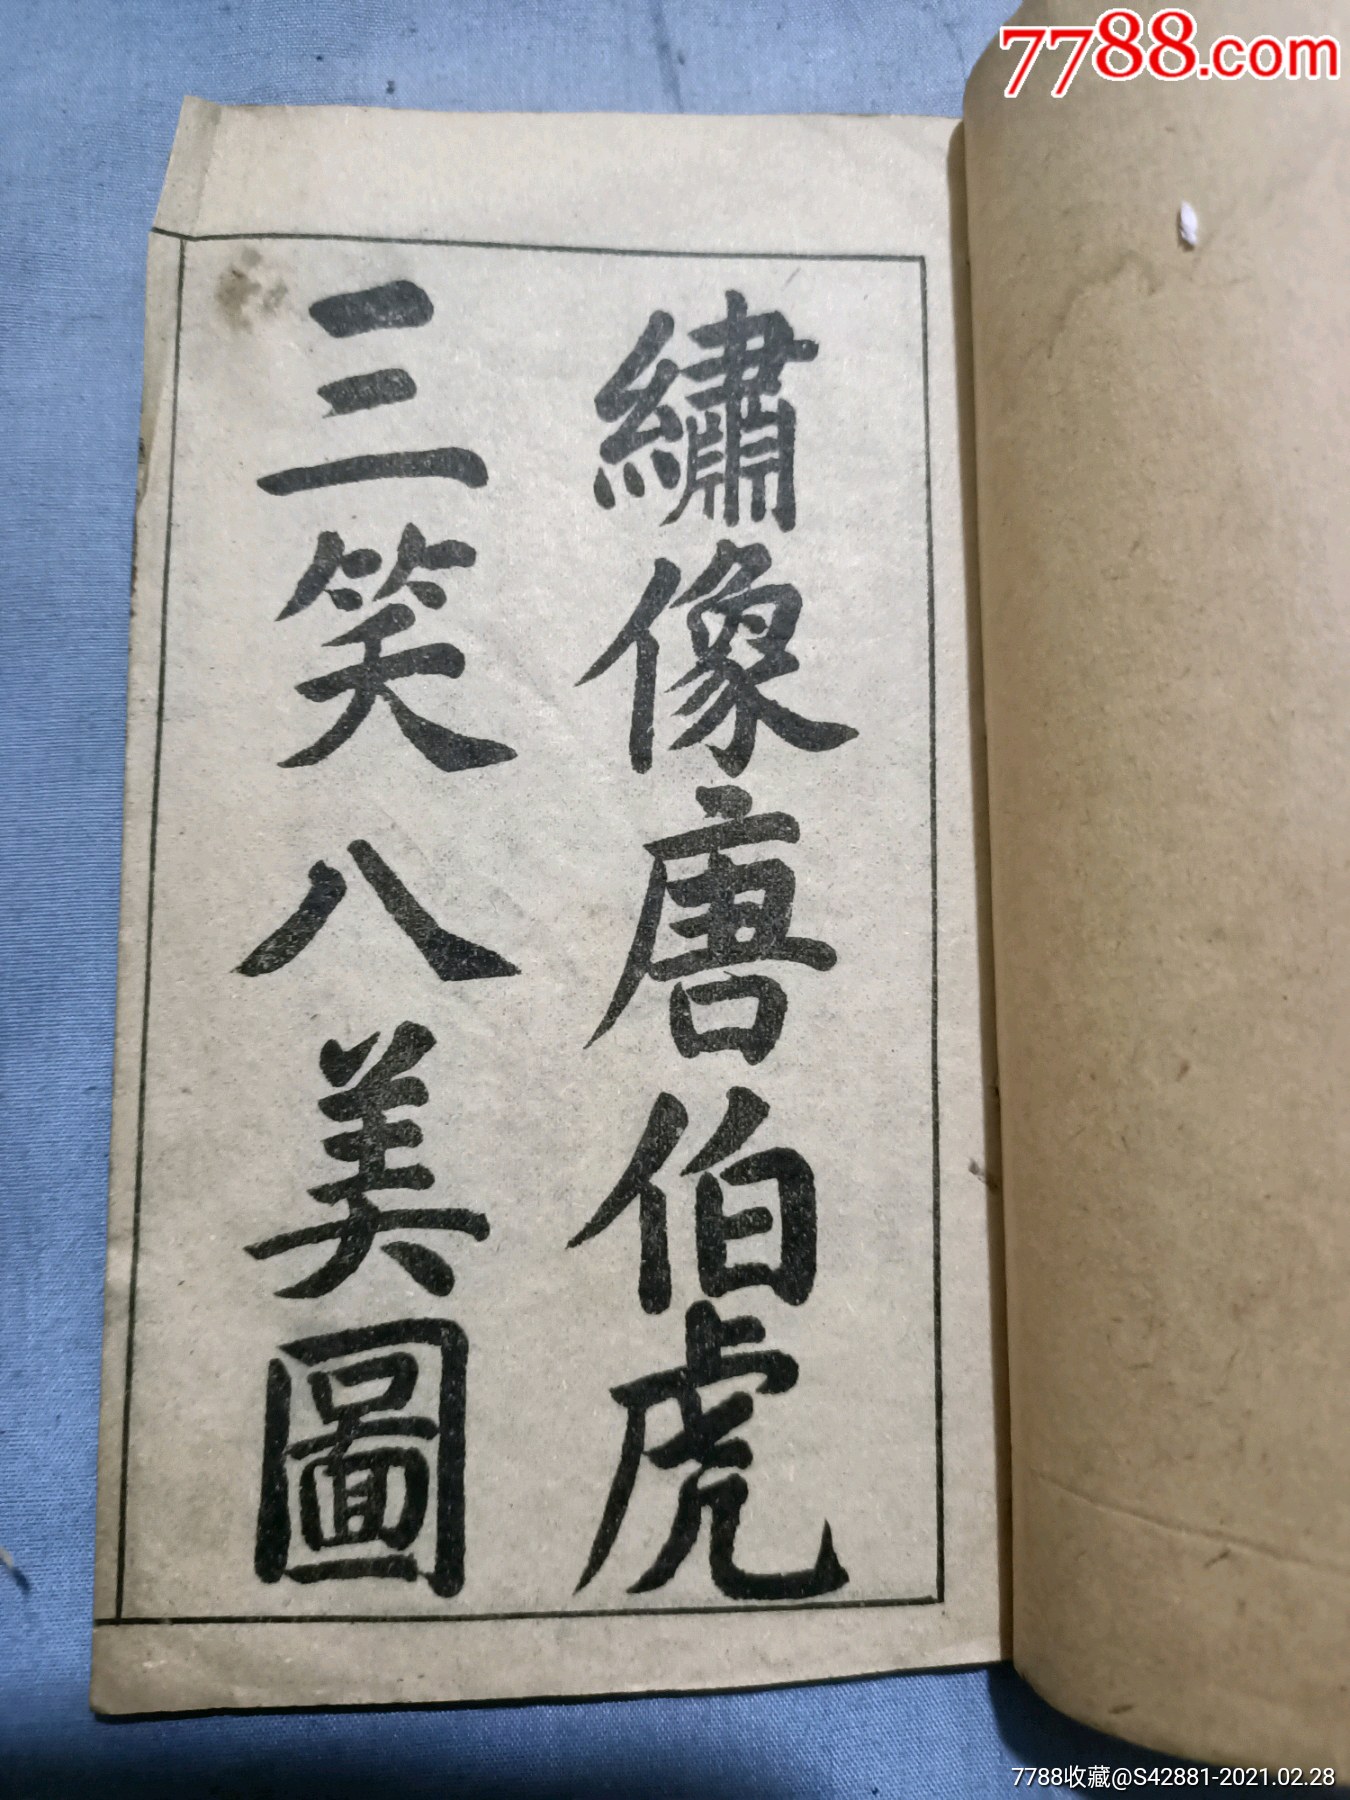 7788.com
繡像唐伯虎
三笑八美圖
7788收藏@S42881-2021.02.28